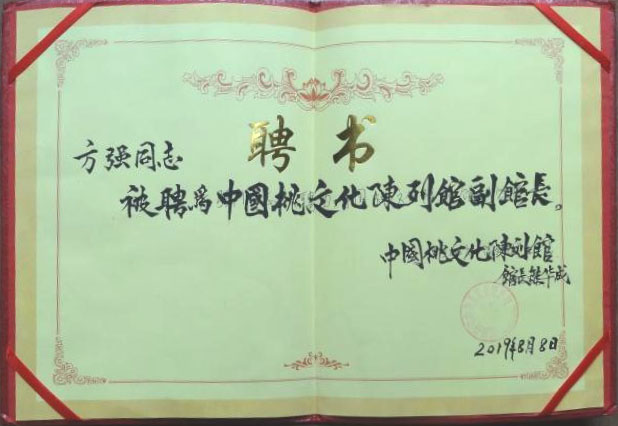 聘书
方强同志
被聘为中國桃文化陳列館副館長。
中國桃文化陳列館
館長熊作成
2019年8月8日